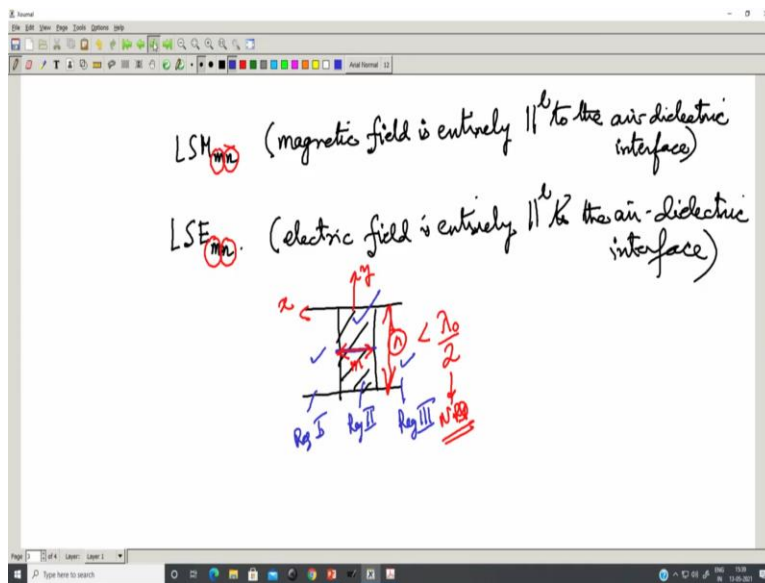 Xournal
File Edit View Page Tools Options Help
Arial Normal 12
LSM mn (magnetic field is entirely ||l to the air dielectric
interface)
LSE mn. (electric field is entirely ||l to the air-dielectric
interface)
y
x
m
n < λ0/2
Reg I Reg II Reg III NRD
Page 3 of 4 Layer: Layer 1
Type here to search
ENG 15:39
IN 13-05-2021